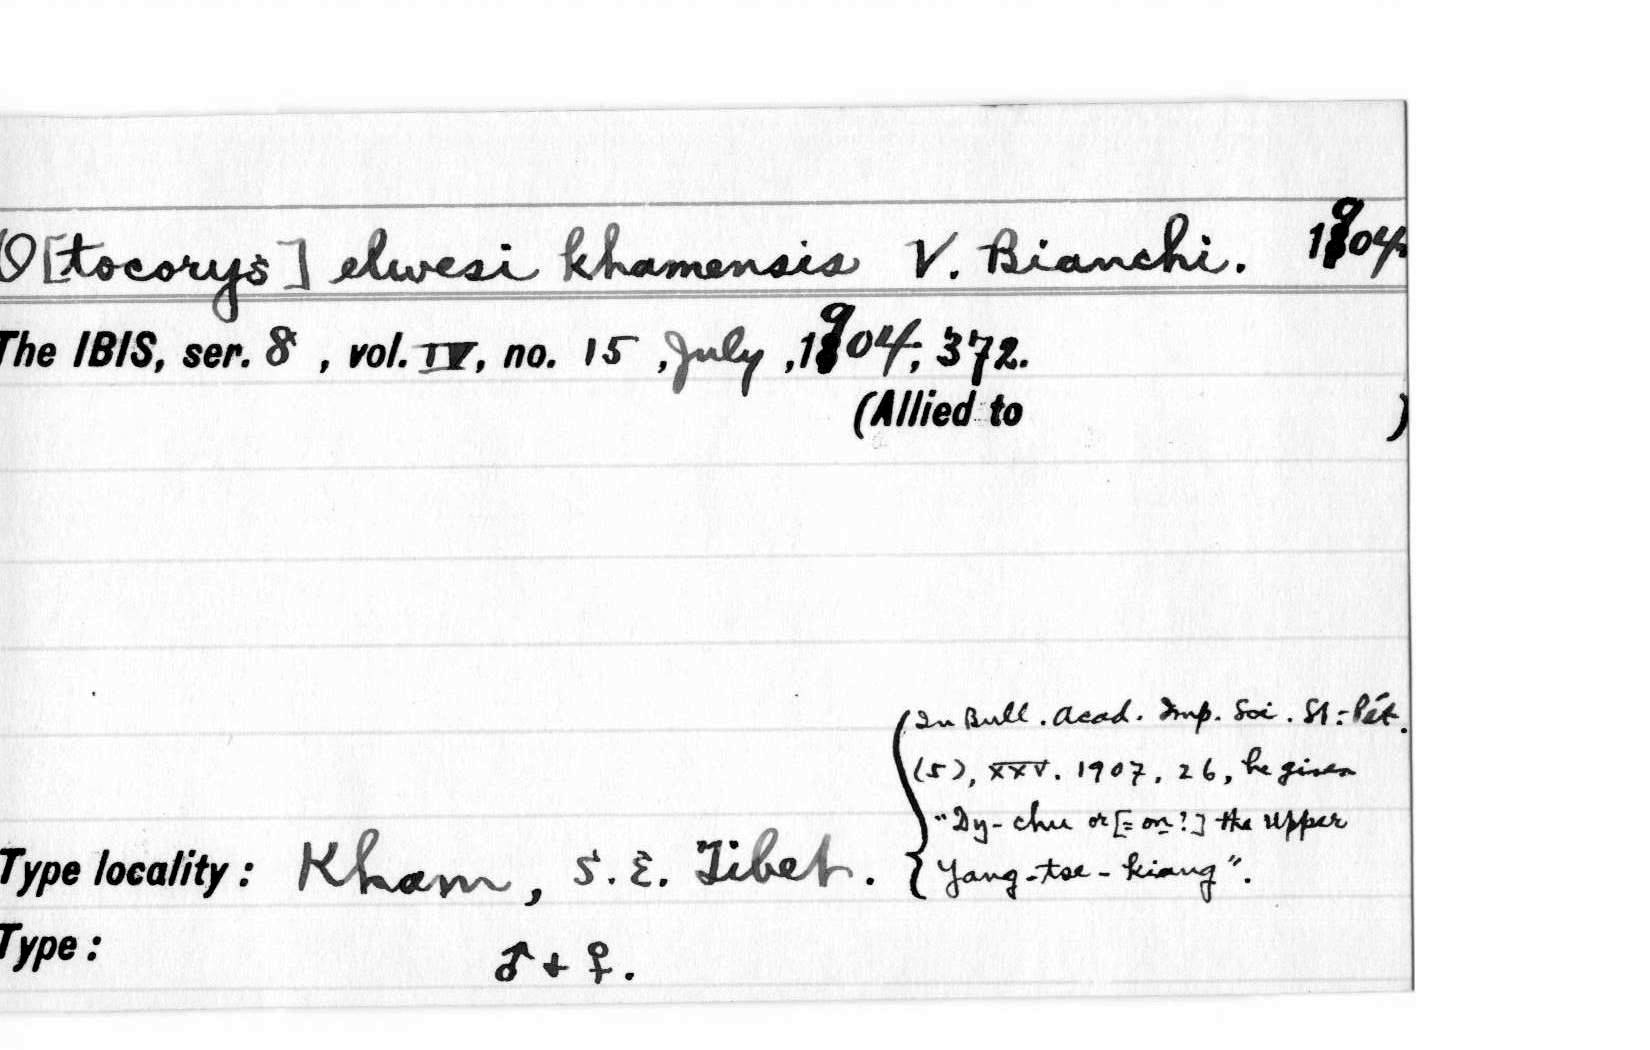 O[tocorys] elwesi khamensis V. Bianchi. 1904.
The IBIS, ser. 8 , vol. IV, no. 15 , July , 1904, 372.
(Allied to )
In Bull. Acad. Imp. Sci. St.-Pét.
(5), XXV. 1907, 26, he gives
"Dy-chu or [= on?] the upper
Yang-tse-kiang".
Type locality : Kham, S.E. Tibet.
Type : ♂ + ♀.